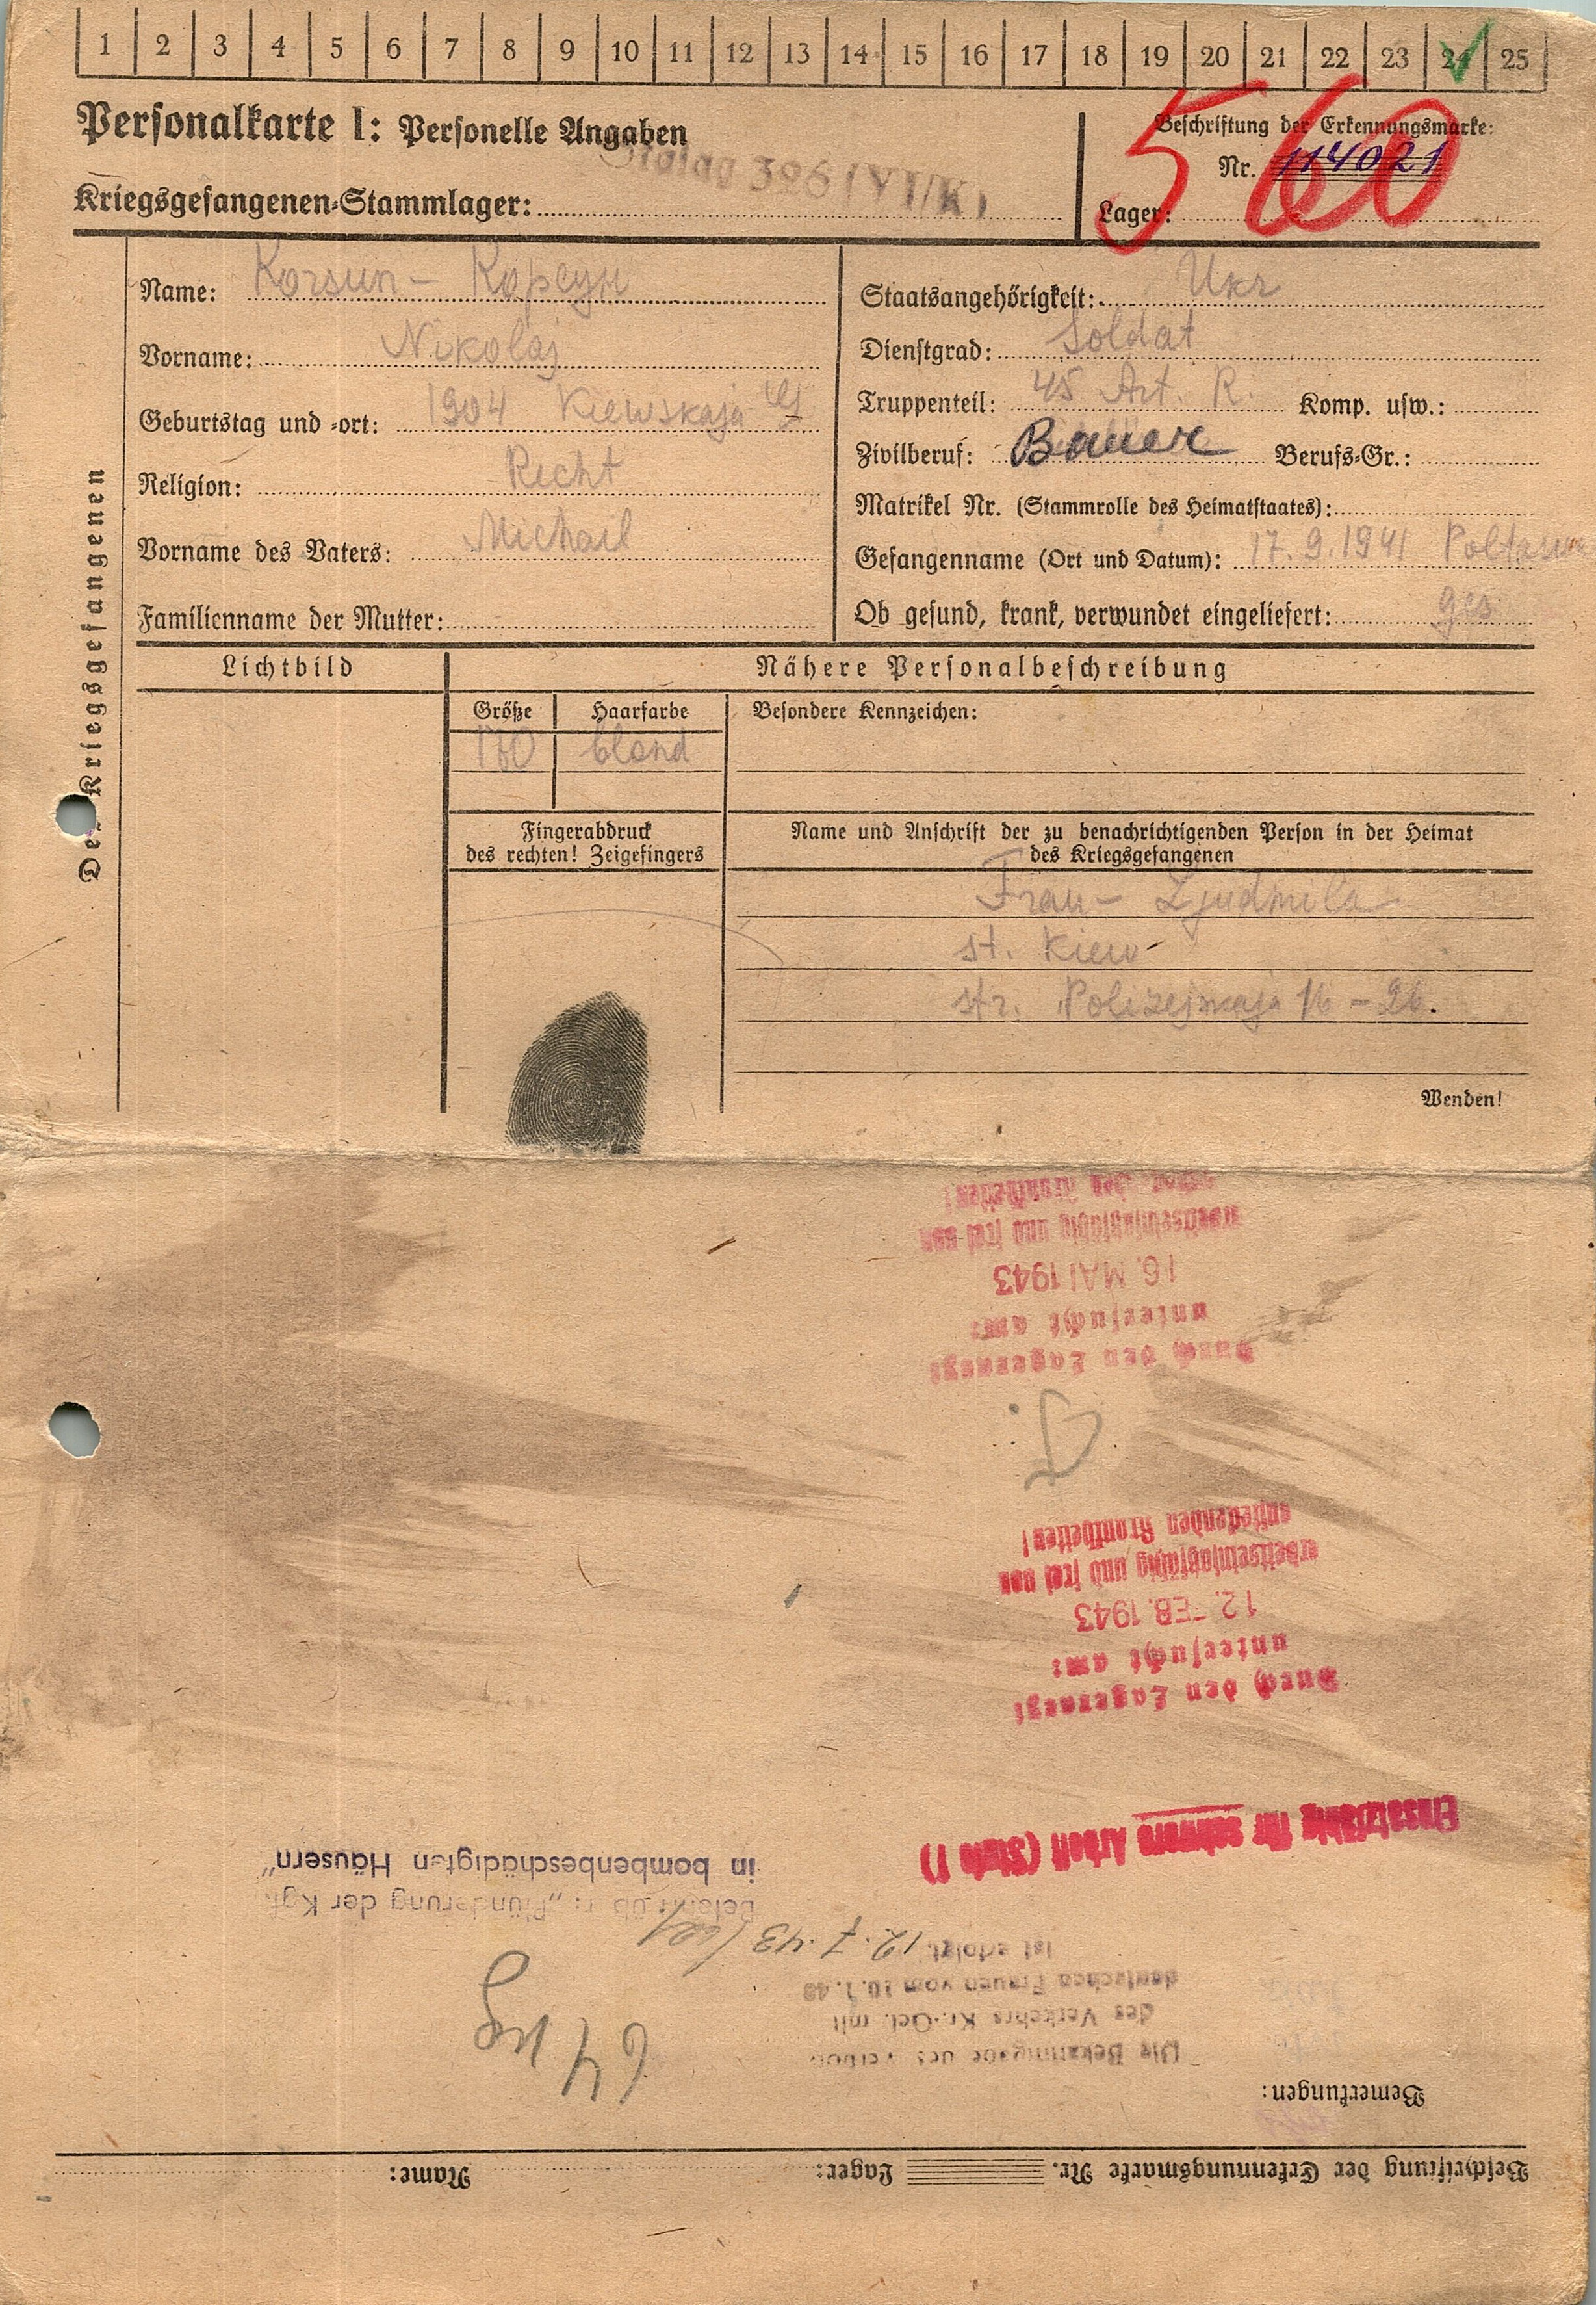 1 2 3 4 5 6 7 8 9 10 11 12 13 14 15 16 17 18 19 20 21 22 23 24 25
Personalkarte I: Personelle Angaben
Beschriftung der Erkennungsmarke:
Nr. 114021
560
Stalag 326 (VI/K)
Kriegsgefangenen-Stammlager:
Lager:
Des Kriegsgefangenen
Name: Korsun – Корсун
Vorname: Nikolaj
Geburtstag und -ort: 1904 Kiewskaja
Religion: Recht
Vorname des Vaters: Michail
Familienname der Mutter:
Staatsangehörigkeit: Ukr
Dienstgrad: Soldat
Truppenteil: 45 Art. R. Komp. usw.:
Zivilberuf: Bauer Berufs-Gr.:
Matrikel Nr. (Stammrolle des Heimatstaates):
Gefangenname (Ort und Datum): 17.9.1941 Poltawa
Ob gesund, krank, verwundet eingeliefert: ges
Lichtbild
Nähere Personalbeschreibung
Größe Haarfarbe Besondere Kennzeichen:
160 blond
Fingerabdruck
des rechten! Zeigefingers
Name und Anschrift der zu benachrichtigenden Person in der Heimat
des Kriegsgefangenen
Frau – Ljudmila
st. Kiew
str. Polizejskaja 16 – 26.
Wenden!
Beschriftung der Erkennungsmarke Nr. Lager: Name:
Bemerkungen:
Die Bekanntgabe des Verbots
des Verkehrs Kr.-Gef. mit
deutschen Frauen vom 10.1.43
ist erfolgt. 12.7.43
64 kg
Belehrt üb r: „Plünderung der Kgf.
in bombenbeschädigten Häusern"
Einsatzfähig für schwere Arbeit (Stufe I)
Durch den Lagerarzt
untersucht am:
12. FEB. 1943
arbeitseinsatzfähig und frei von
ansteckenden Krankheiten!
Durch den Lagerarzt
untersucht am:
16. MAI 1943
arbeitseinsatzfähig und frei von
ansteckenden Krankheiten!